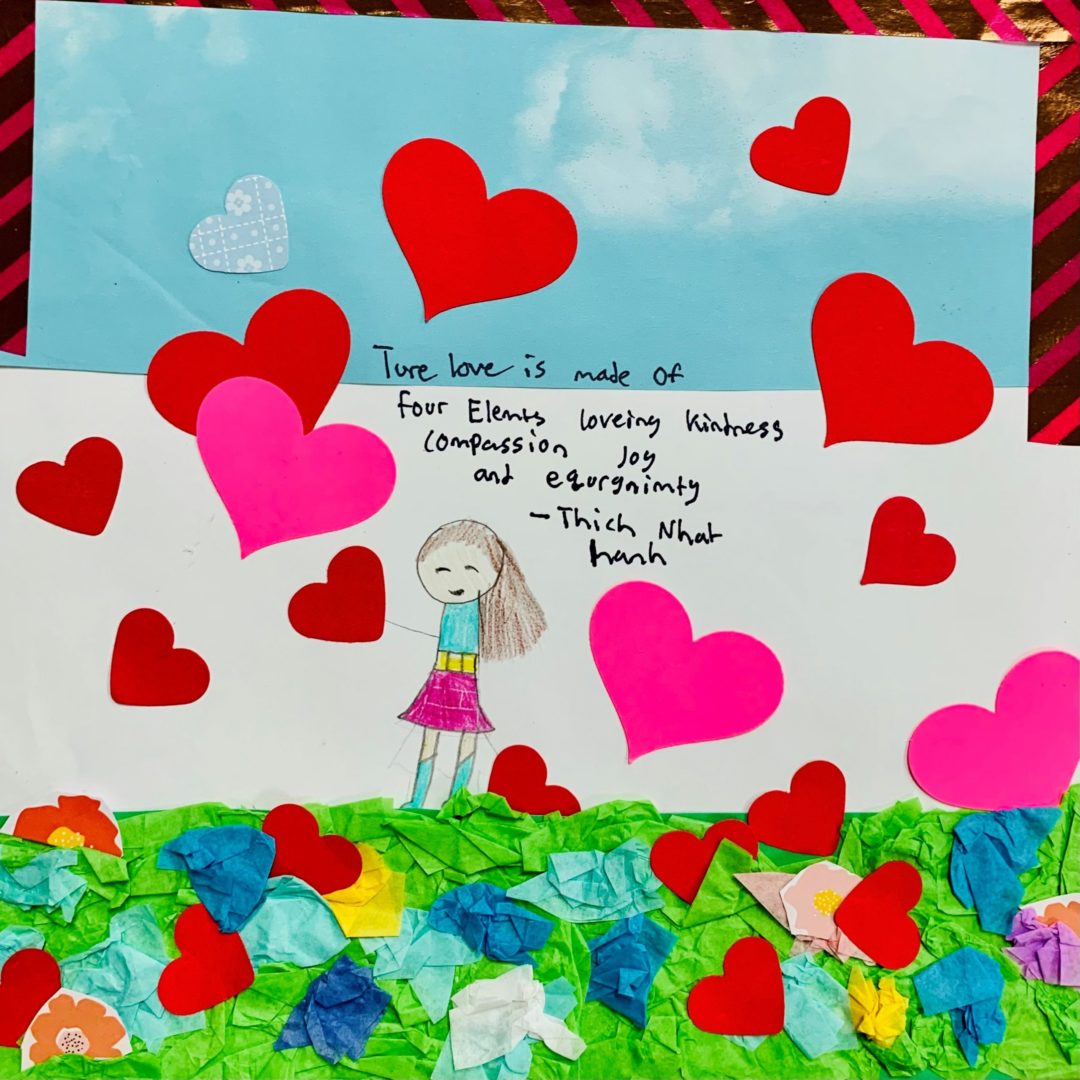 Ture love is made of
four Elemts loveing kindness
compassion Joy
and equrgnimty
- Thich Nhat
hanh